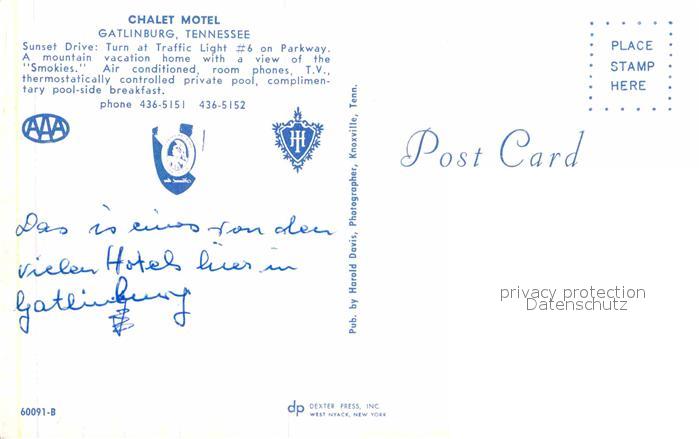 CHALET MOTEL
GATLINBURG, TENNESSEE
Sunset Drive: Turn at Traffic Light #6 on Parkway.
A mountain vacation home with a view of the
"Smokies." Air conditioned, room phones, T.V.,
thermostatically controlled private pool, complimen-
tary pool-side breakfast.
phone 436-5151 436-5152
AAA
PLACE
STAMP
HERE
Post Card
Pub. by Harold Davis, Photographer, Knoxville, Tenn.
Das is eines von den
vielen Hotels hier in
Gatlinburg
privacy protection
Datenschutz
60091-B
dp DEXTER PRESS, INC.
WEST NYACK, NEW YORK